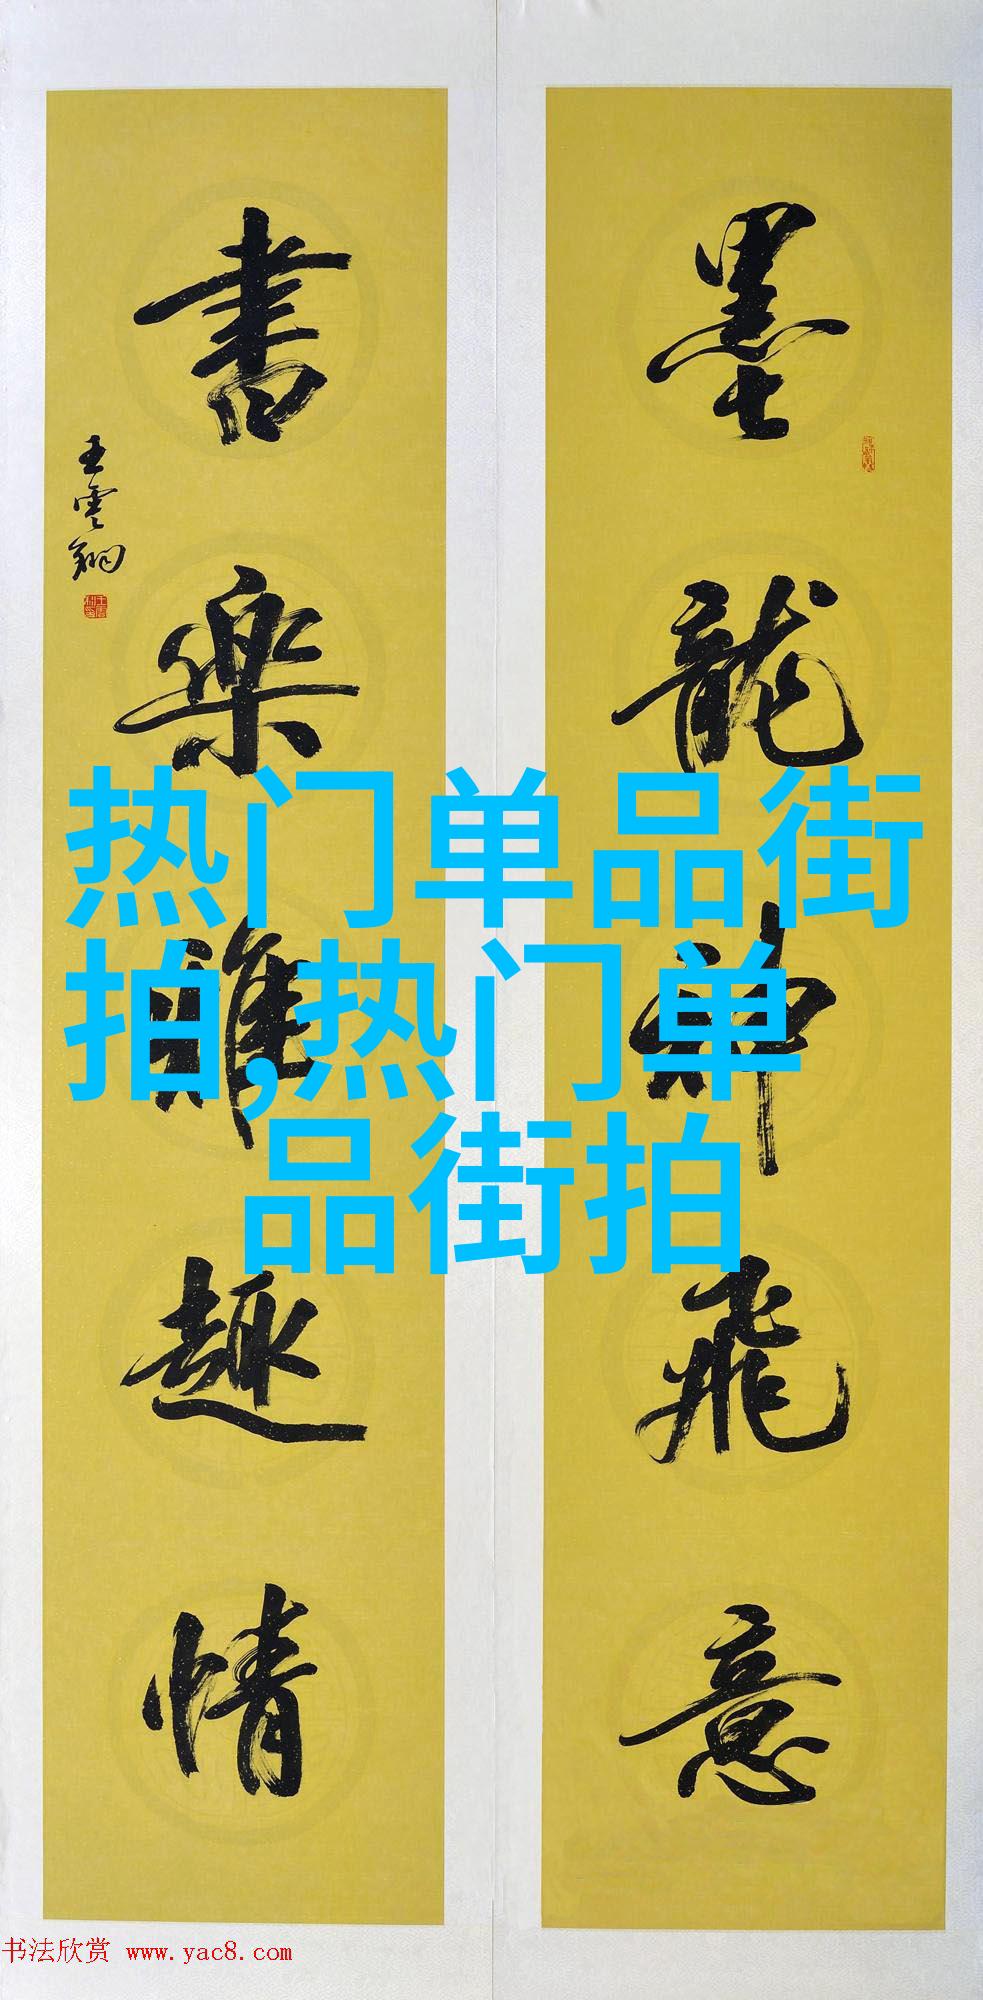 墨龍神飛意
書樂雅趣情
王雲翔
热门单品街
拍,热门单
品街拍
书法欣赏 www.yac8.com